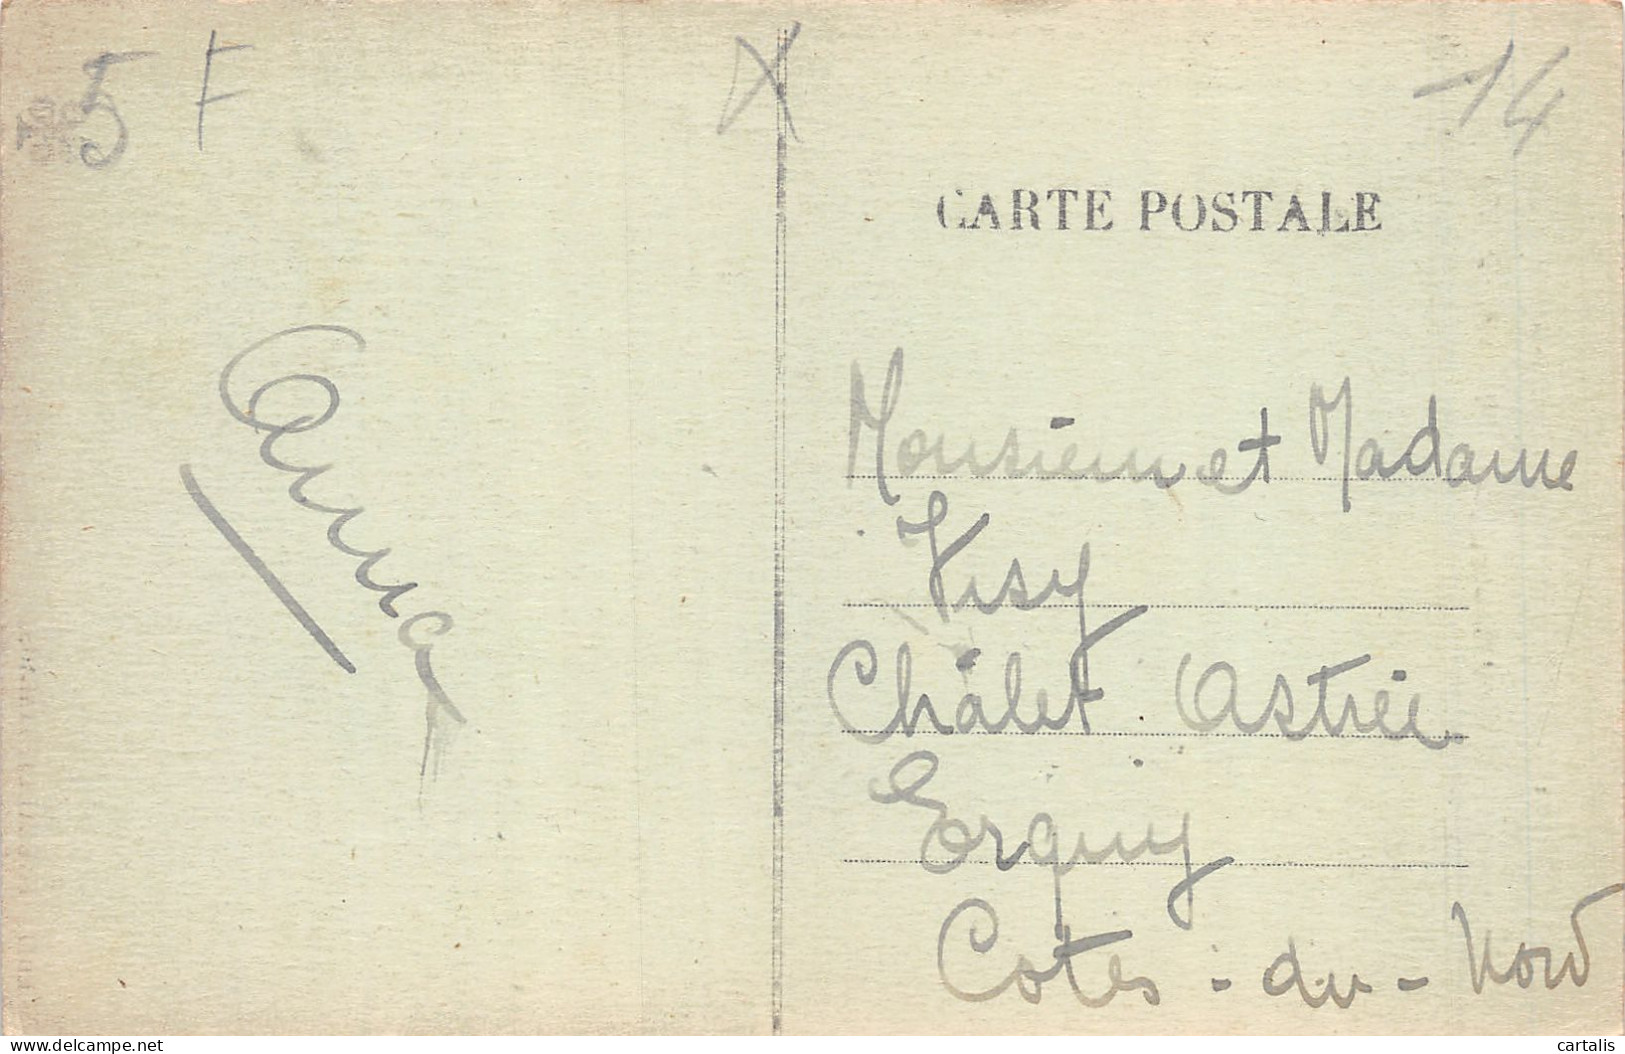 5 F
X
14
CARTE POSTALE
Anna
Monsieur et Madame
Visy
Châlet Astrée
Erquy
Cotes-du-Nord
delcampe.net
cartalis